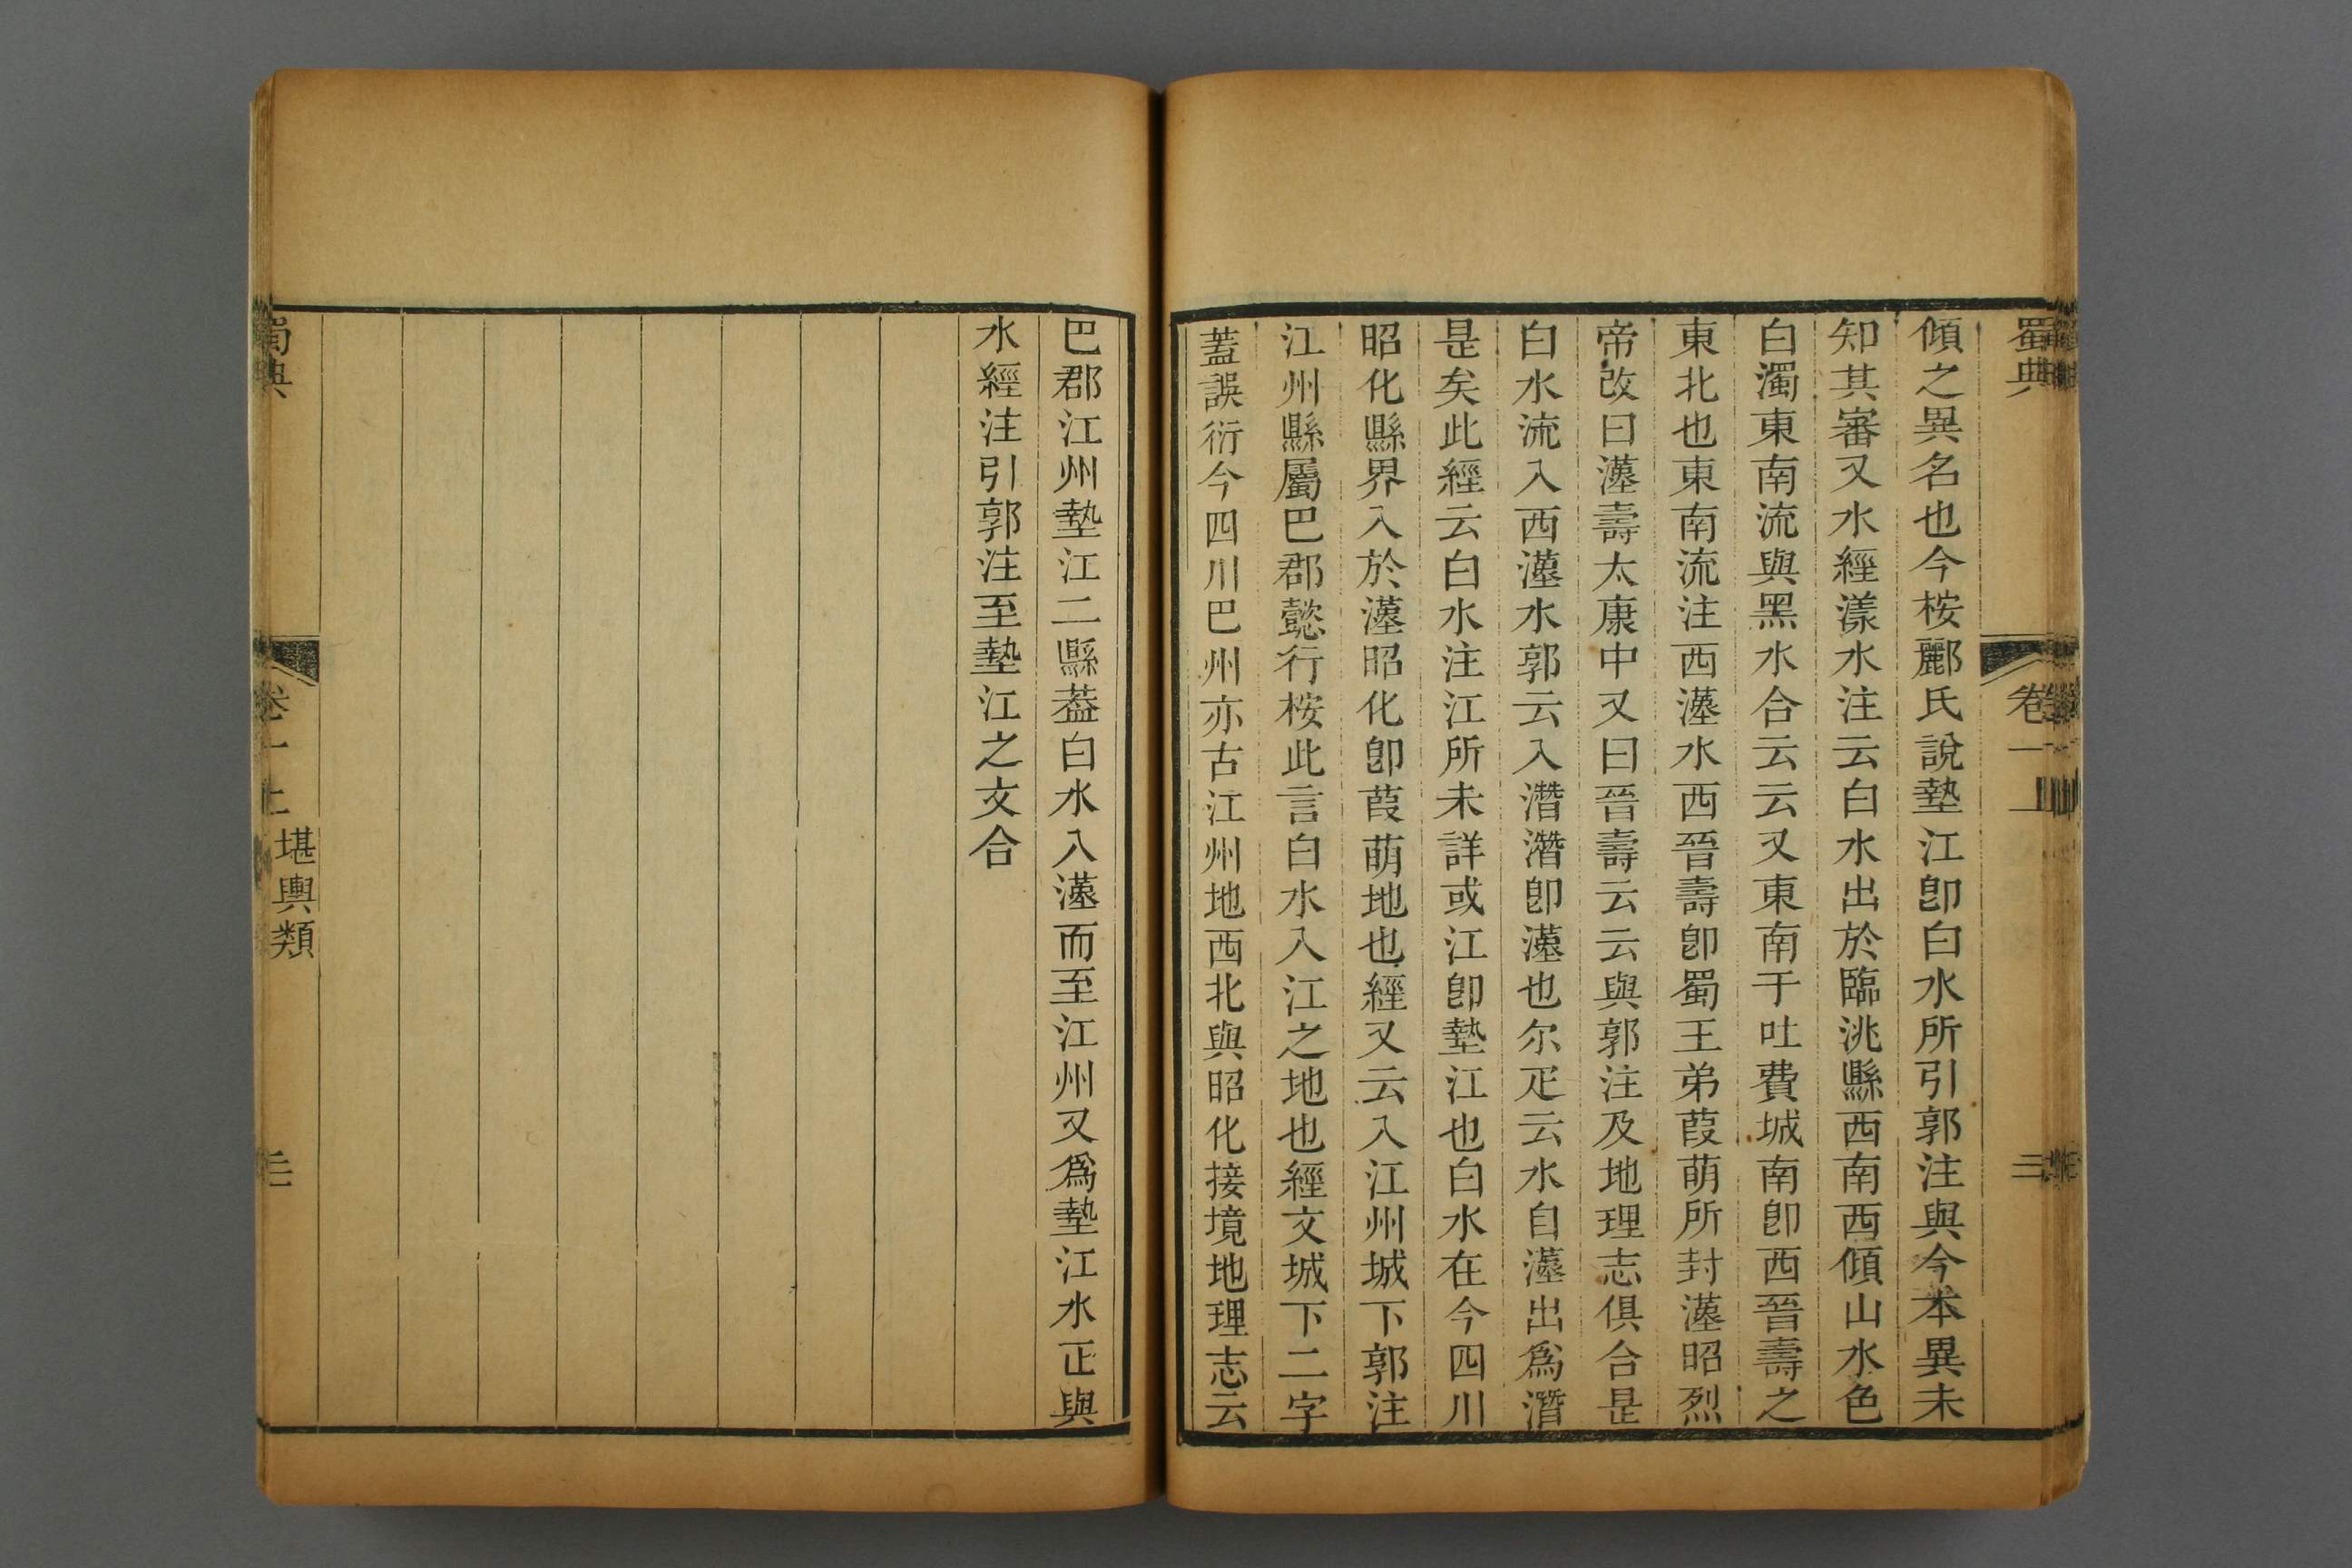 蜀典
卷一上
三
傾之異名也今桉酈氏說墊江卽白水所引郭注與今本異未
知其審又水經漾水注云白水出於臨洮縣西南西傾山水色
白濁東南流與黑水合云云又東南于吐費城南卽西晉壽之
東北也東南流注西漢水西晉壽卽蜀王弟葭萌所封漢昭烈
帝改曰漢壽太康中又曰晉壽云云與郭注及地理志俱合是
白水流入西漢水郭云入潛潛卽漢也尔疋云水自漢出爲潛
是矣此經云白水注江所未詳或江卽墊江也白水在今四川
昭化縣界入於漢昭化卽葭萌地也經又云入江州城下郭注
江州縣屬巴郡懿行桉此言白水入江之地也經文城下二字
蓋誤衍今四川巴州亦古江州地西北與昭化接境地理志云
巴郡江州墊江二縣葢白水入漢而至江州又爲墊江水正與
水經注引郭注至墊江之文合
蜀典
卷一上
堪輿類
三